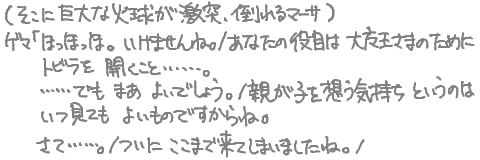 (そこに巨大な火球が激突、倒れるマーサ)
ゲマ「ほっほっほ。いけませんね。/あなたの役目は大魔王さまのために
トビラを開くこと……。
……でもまあよいでしょう。/親が子を想う気持ちというのは
いつ見てもよいものですからね。
さて……。/ついにここまで来てしまいましたね。/